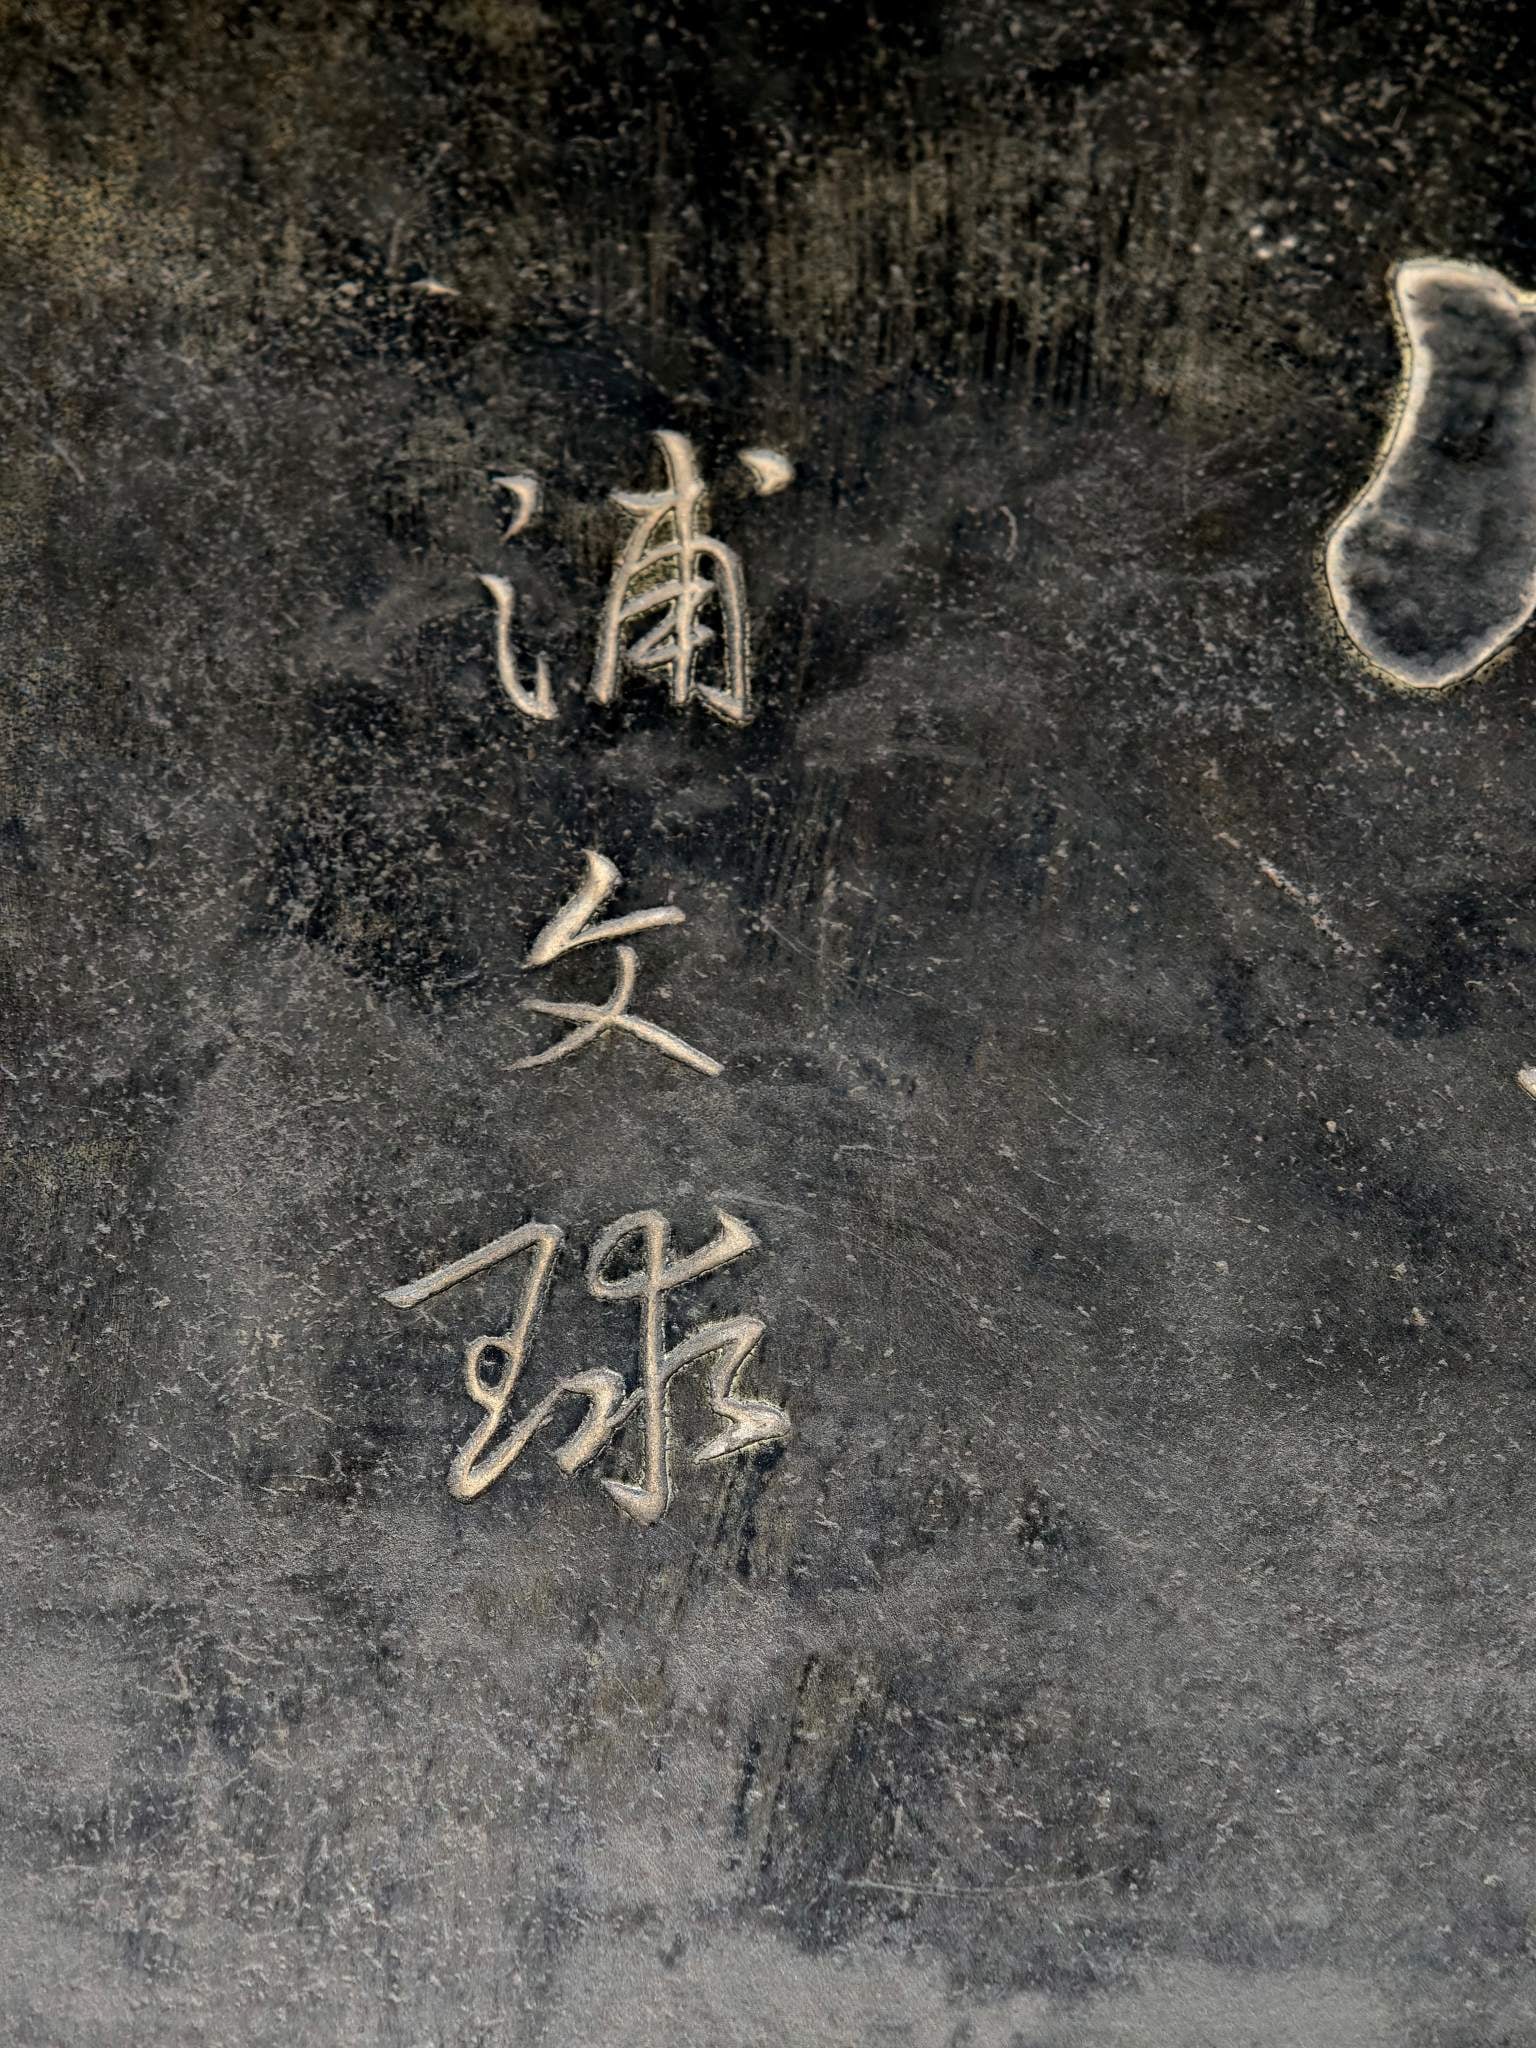 浦文球